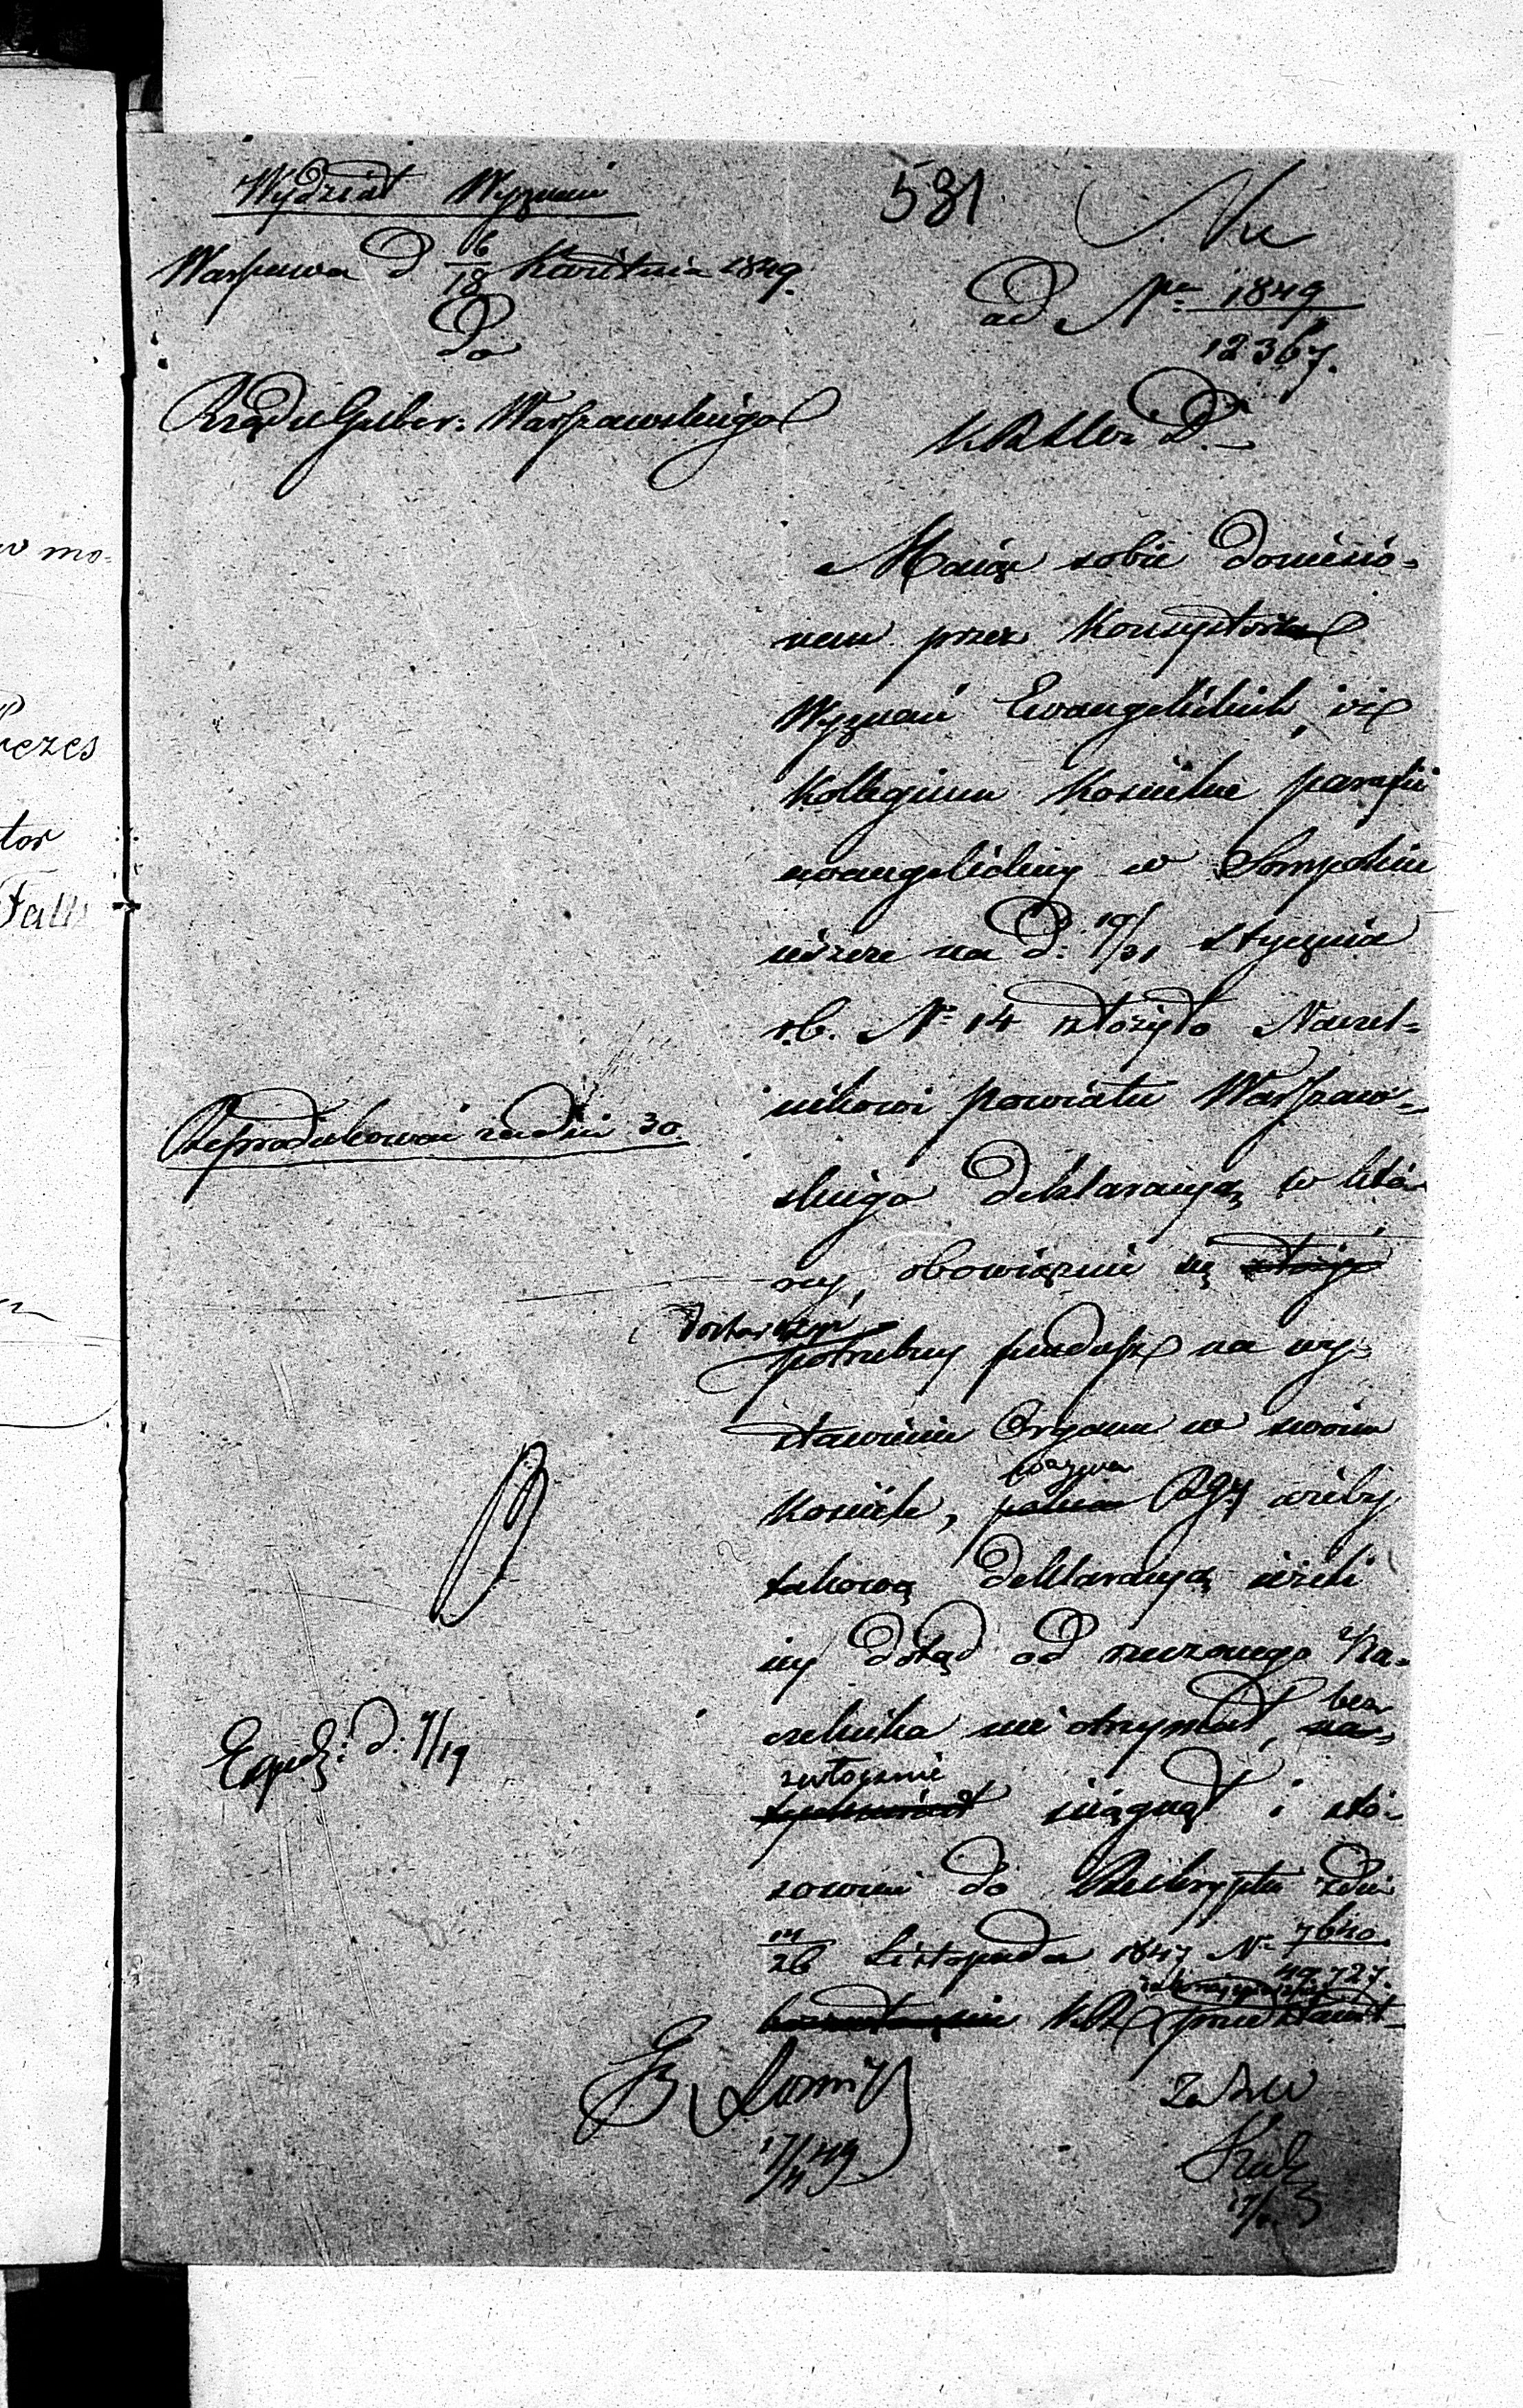 Wydział Wyznań
Warszawa d 6/18 Kwietnia 1849.
Do
Rządu Guber. Warszawskiego
531
ad Nr 1849/12367.
Maiąc sobie doniesio-
nem przez Konsystorz
Wyznań Ewangelickich, iż
Kollegium Kościelne parafii
ewangelickiey w Sompolnie
ieszcze na d. 19/31 stycznia
r.b. Nr 14 złożyło Naczel-
nikowi powiatu Warszaw-
skiego deklaracyą, w któ-
rey obowiązuie się złożyć
dostarczyć
potrzebny fundusz na wy-
stawienie Organu w swoim
wzywa
Kościele, poleca Rząd ażeby
takową deklaracyą ieżeli
iey dotąd od rzeczonego Na-
czelnika nie otrzymał, bez-
zwłocznie
ściągnął i sto-
sownie do Reskryptu z dnia
14/26 Listopada 1847 Nr 7640/49727.
KR przedstawił
Reprodukować za dni 30
Exped: d. 7/19
17/4 49